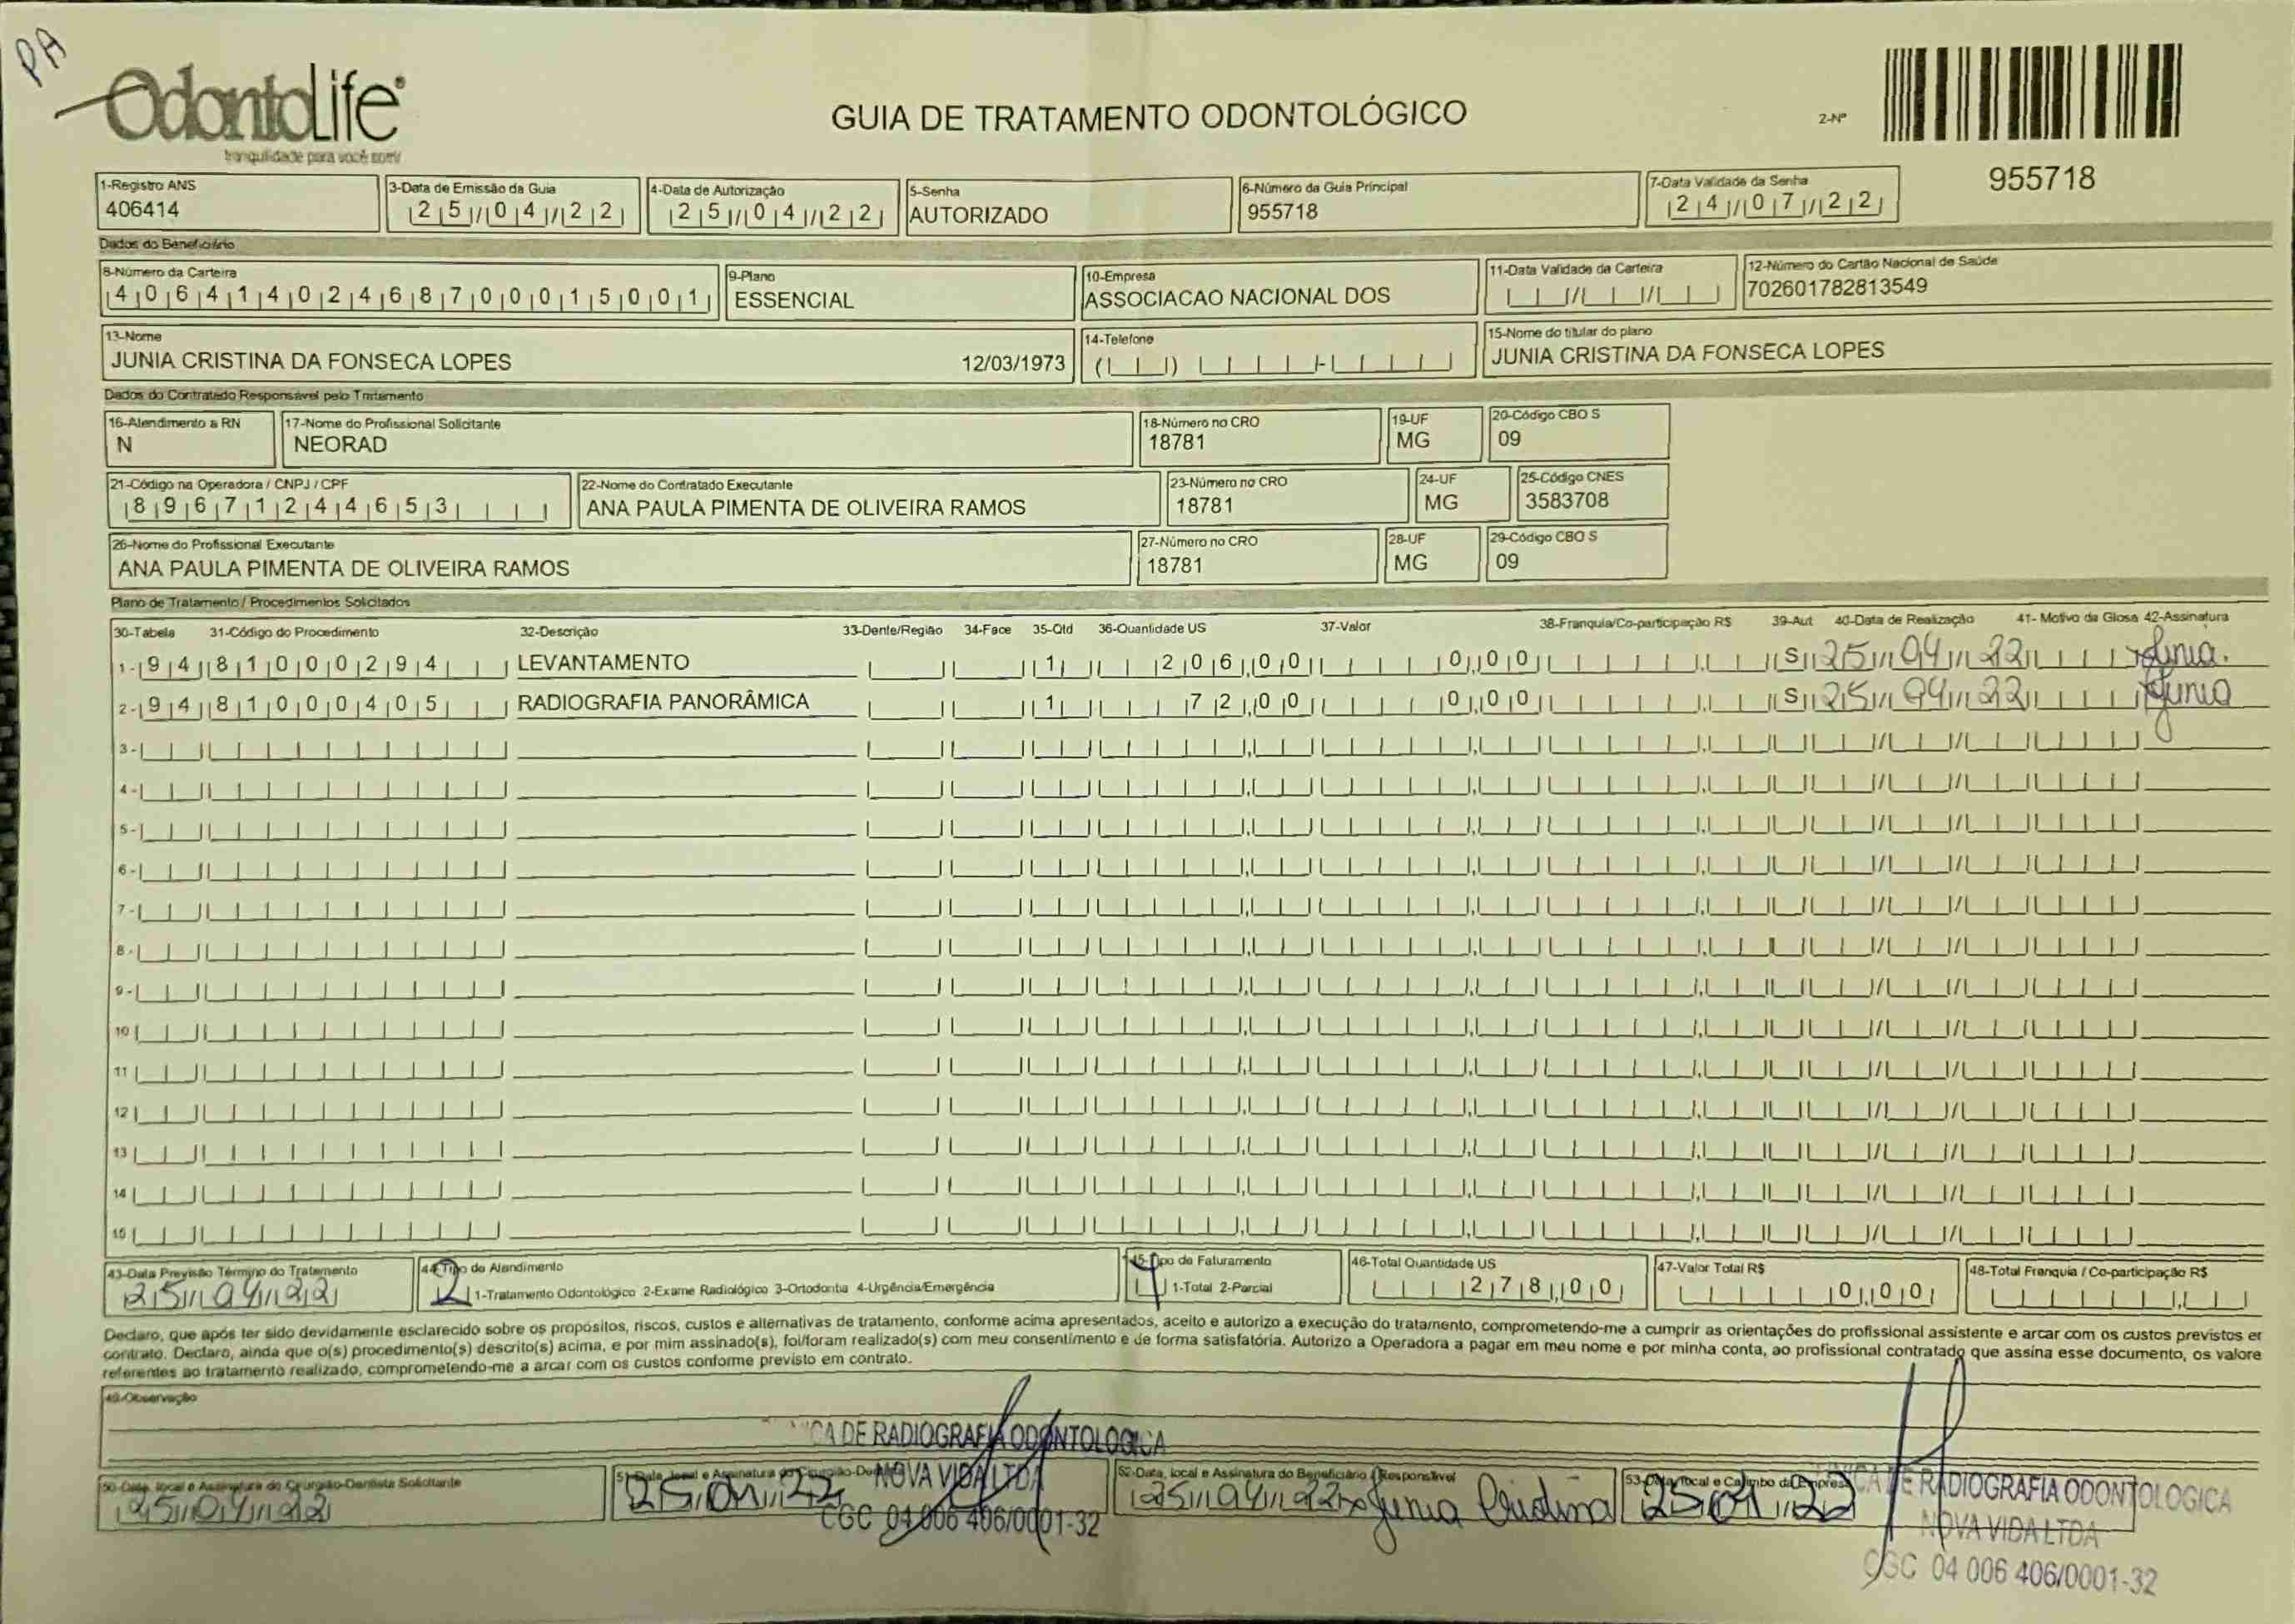 PA
OdontoLife
tranquilidade para você sorrir
GUIA DE TRATAMENTO ODONTOLÓGICO
2-Nº
955718
1-Registro ANS
406414
3-Data de Emissão da Guia
25/04/22
4-Data de Autorização
25/04/22
5-Senha
AUTORIZADO
6-Número da Guia Principal
955718
7-Data Validade da Senha
24/07/22
Dados do Beneficiário
8-Número da Carteira
40641402468700015001
9-Plano
ESSENCIAL
10-Empresa
ASSOCIACAO NACIONAL DOS
11-Data Validade da Carteira
12-Número do Cartão Nacional de Saúde
702601782813549
13-Nome
JUNIA CRISTINA DA FONSECA LOPES 12/03/1973
14-Telefone
15-Nome do titular do plano
JUNIA CRISTINA DA FONSECA LOPES
Dados do Contratado Responsável pelo Tratamento
16-Atendimento a RN
N
17-Nome do Profissional Solicitante
NEORAD
18-Número no CRO
18781
19-UF
MG
20-Código CBO S
09
21-Código na Operadora / CNPJ / CPF
89671244653
22-Nome do Contratado Executante
ANA PAULA PIMENTA DE OLIVEIRA RAMOS
23-Número no CRO
18781
24-UF
MG
25-Código CNES
3583708
26-Nome do Profissional Executante
ANA PAULA PIMENTA DE OLIVEIRA RAMOS
27-Número no CRO
18781
28-UF
MG
29-Código CBO S
09
Plano de Tratamento / Procedimentos Solicitados
30-Tabela 31-Código do Procedimento 32-Descrição 33-Dente/Região 34-Face 35-Qtd 36-Quantidade US 37-Valor 38-Franquia/Co-participação R$ 39-Aut 40-Data de Realização 41- Motivo da Glosa 42-Assinatura
1- 94 81000294 LEVANTAMENTO 1 206,00 0,00 S 25/04/22 Junia.
2- 94 81000405 RADIOGRAFIA PANORÂMICA 1 72,00 0,00 S 25/04/22 Junia
3-
4-
5-
6-
7-
8-
9-
10
11
12
13
14
15
43-Data Previsão Término do Tratamento
25/04/22
44-Tipo de Atendimento
2 1-Tratamento Odontológico 2-Exame Radiológico 3-Ortodontia 4-Urgência/Emergência
45-Tipo de Faturamento
1 1-Total 2-Parcial
46-Total Quantidade US
278,00
47-Valor Total R$
0,00
48-Total Franquia / Co-participação R$
Declaro, que após ter sido devidamente esclarecido sobre os propósitos, riscos, custos e alternativas de tratamento, conforme acima apresentados, aceito e autorizo a execução do tratamento, comprometendo-me a cumprir as orientações do profissional assistente e arcar com os custos previstos e
contrato. Declaro, ainda que o(s) procedimento(s) descrito(s) acima, e por mim assinado(s), foi/foram realizado(s) com meu consentimento e de forma satisfatória. Autorizo a Operadora a pagar em meu nome e por minha conta, ao profissional contratado que assina esse documento, os valore
referentes ao tratamento realizado, comprometendo-me a arcar com os custos conforme previsto em contrato.
49-Observação
50-Data, local e Assinatura do Cirurgião-Dentista Solicitante
25/04/22
51-Data, local e Assinatura do Cirurgião-De
25/04/22
DE RADIOGRAFIA ODONTOLOGICA
NOVA VIDA LTDA
CGC 04 006 406/0001-32
52-Data, local e Assinatura do Beneficiário / Responsável
25/04/22 Junia Cristina
53-Data, local e Carimbo da Empresa
25/04/22
DE RADIOGRAFIA ODONTOLOGICA
NOVA VIDA LTDA
CGC 04 006 406/0001-32